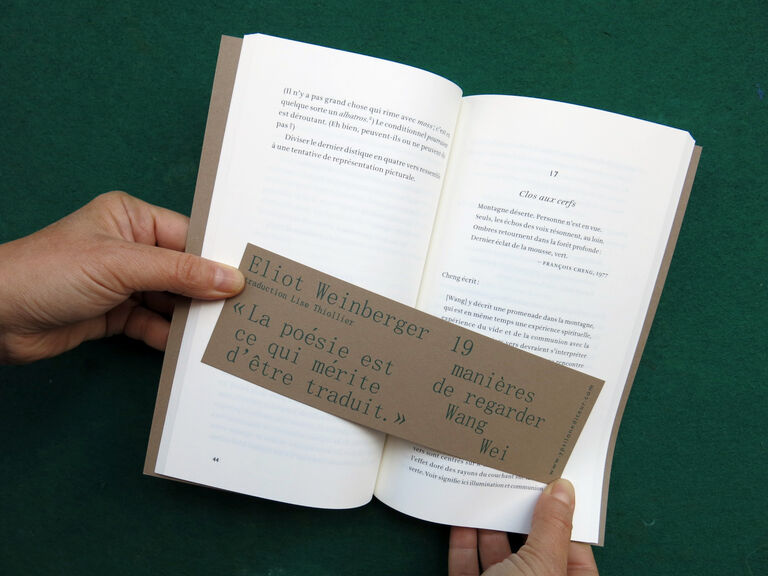 (Il n'y a pas grand chose qui rime avec moss ; c'est en
quelque sorte un albatros.⁴) Le conditionnel pourraient
est déroutant. (Eh bien, peuvent-ils ou ne peuvent-ils
pas ?)
Diviser le dernier distique en quatre vers ressemble
à une tentative de représentation picturale.
44
17
Clos aux cerfs
Montagne déserte. Personne n'est en vue.
Seuls, les échos des voix résonnent, au loin.
Ombres retournent dans la forêt profonde :
Dernier éclat de la mousse, vert.
– FRANÇOIS CHENG, 1977
Cheng écrit :
[Wang] y décrit une promenade dans la montagne,
qui est en même temps une expérience spirituelle,
expérience du vide et de la communion avec la
vers devraient s'interpréter
rencontre
vers sont centrés sur
l'effet doré des rayons du couchant sur
verte. Voir signifie ici illumination et communion
Eliot Weinberger
traduction Lise Thiollier
«La poésie est
ce qui mérite
d'être traduit.»
19
manières
de regarder
Wang
Wei
www.ypsilonediteur.com